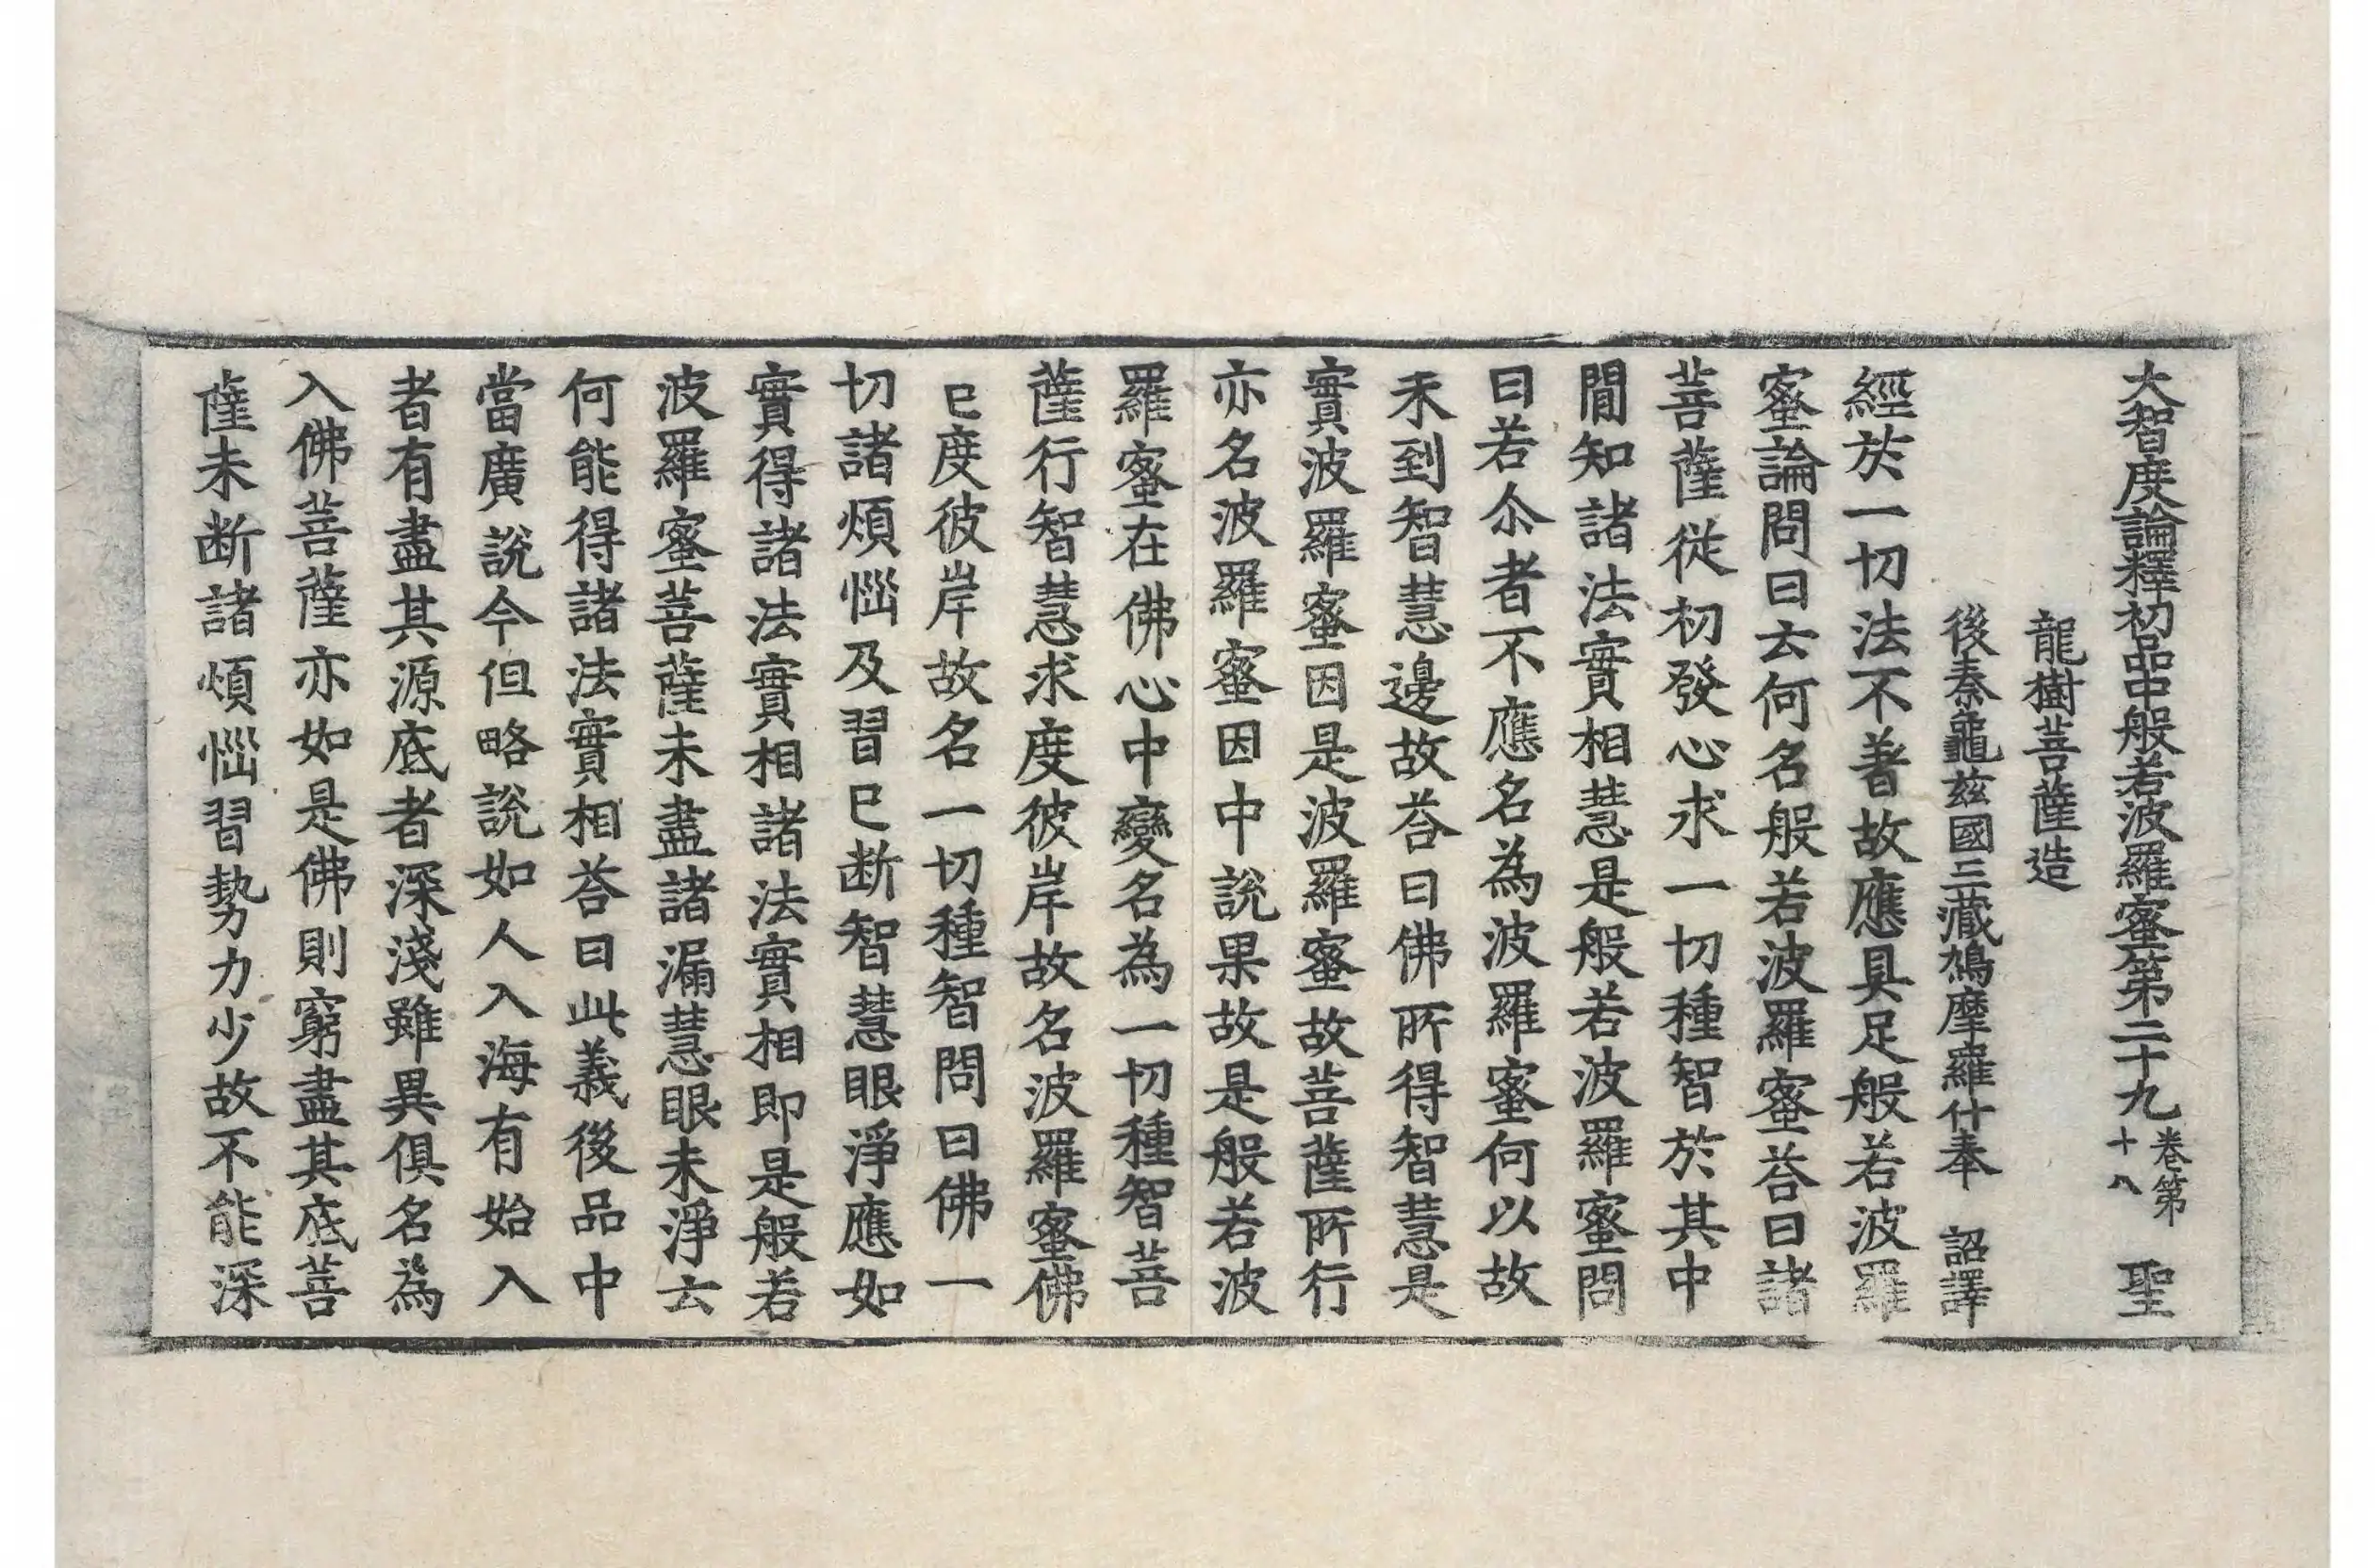 大智度論釋初品中般若波羅蜜第二十九 卷第十八 聖
龍樹菩薩造
後秦龜玆國三藏鳩摩羅什奉 詔譯
經於一切法不著故應具足般若波羅
蜜論問曰云何名般若波羅蜜荅曰諸
菩薩從初發心求一切種智於其中
閒知諸法實相慧是般若波羅蜜問
曰若尒者不應名為波羅蜜何以故
未到智慧邊故荅曰佛所得智慧是
實波羅蜜因是波羅蜜故菩薩所行
亦名波羅蜜因中說果故是般若波
羅蜜在佛心中變名為一切種智菩
薩行智慧求度彼岸故名波羅蜜佛
已度彼岸故名一切種智問曰佛一
切諸煩惱及習已断智慧眼淨應如
實得諸法實相諸法實相即是般若
波羅蜜菩薩未盡諸漏慧眼未淨云
何能得諸法實相荅曰此義後品中
當廣說今但略說如人入海有始入
者有盡其源底者深淺雖異俱名為
入佛菩薩亦如是佛則窮盡其底菩
薩未断諸煩惱習勢力少故不能深